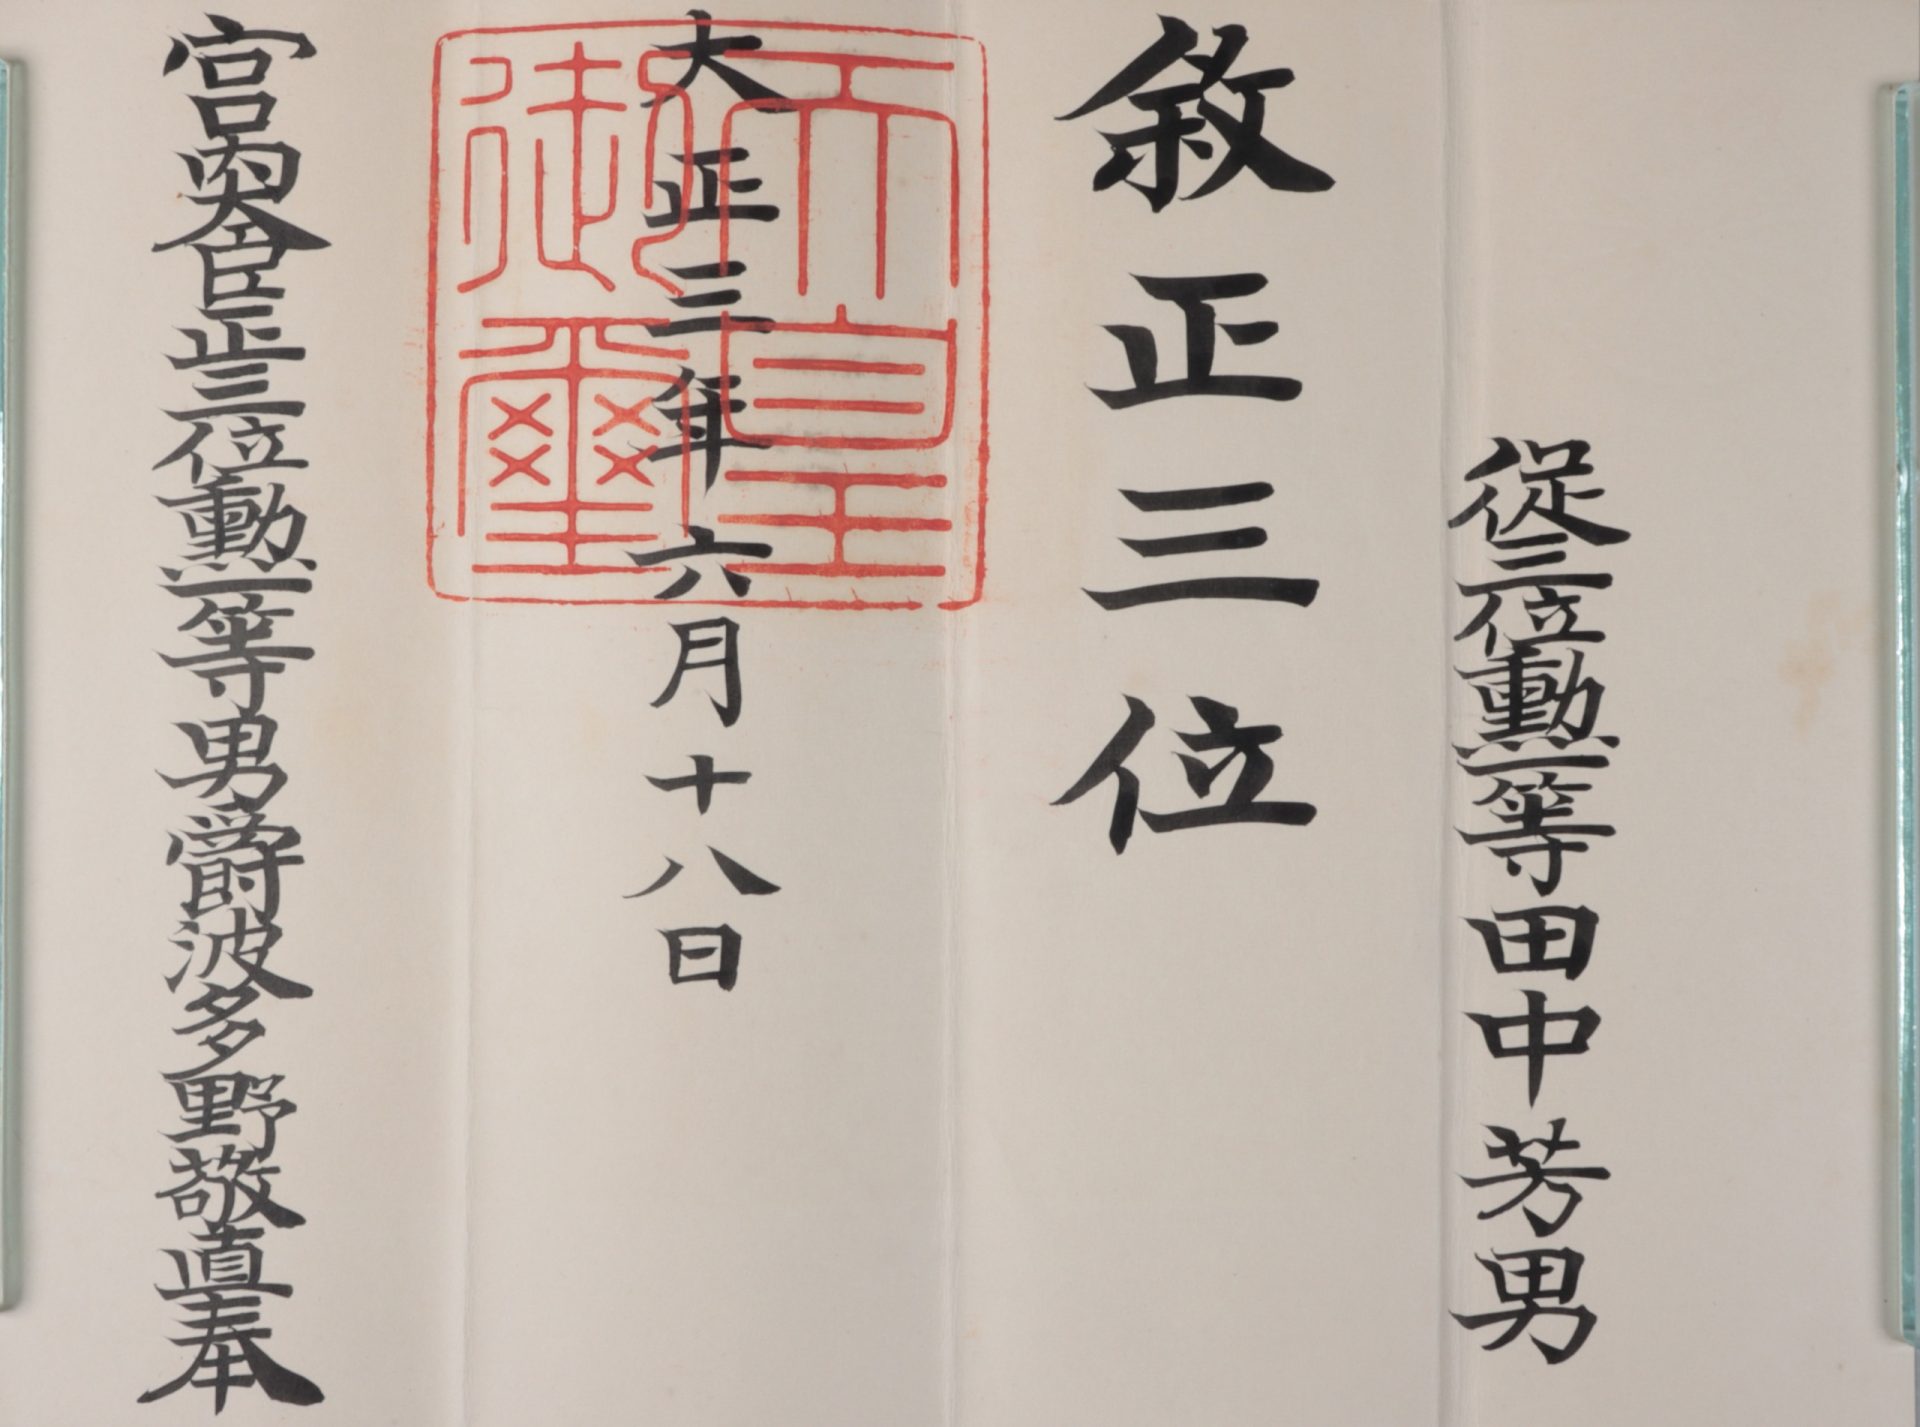 從三位勳一等田中芳男
敘正三位
大正三年六月十八日
天皇
御璽
宮內大臣正三位勳一等男爵波多野敬直奉